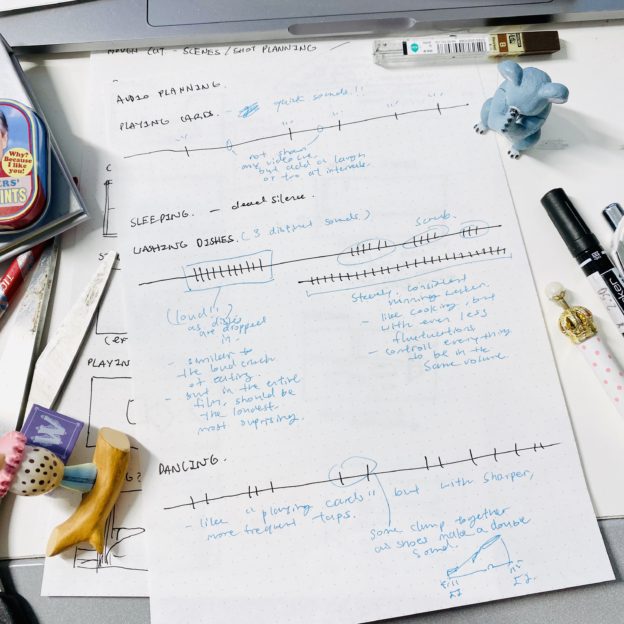 SCENES/SHOT PLANNING
AUDIO PLANNING.
PLAYING CARDS. - quick sounds!!
not shown
any video cue.
but add a laugh
or two at intervals.
SLEEPING. - dead silence.
WASHING DISHES. (3 distinct sounds.)
Scrub.
(loud!!)
as dishes
are dropped
in.
- similar to
the loud crack
of eating.
- but in the entire
film, should be
the loudest.
most surprising.
Steady, consistent
running water.
- like cooking, but
with even less
fluctuations.
- control everything
to be in the
same volume.
DANCING.
- like "playing cards" but with sharper,
more frequent taps.
Some clump together
as shoes make a double
sound.
PLAYIN
Why?
Because I
like you!
ERS'
MINTS